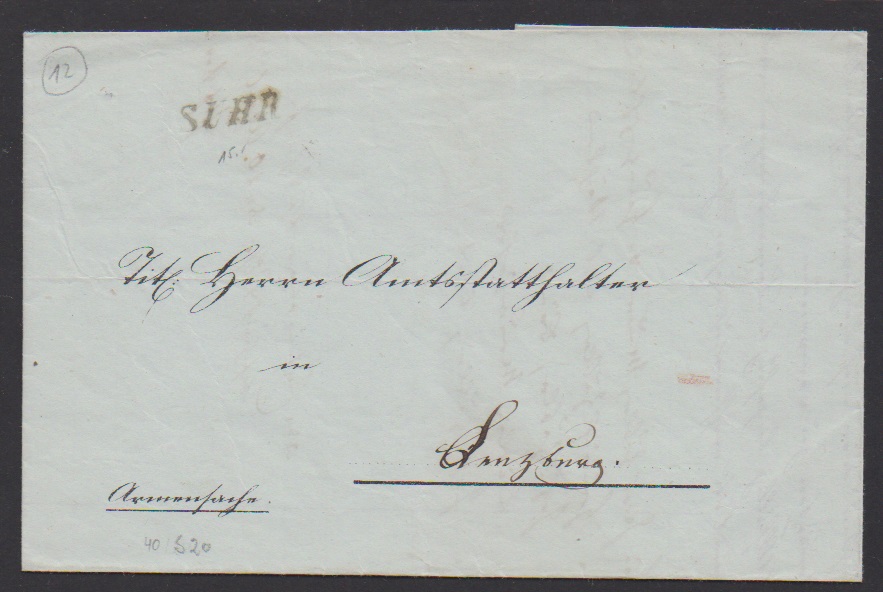 12
SUHR
15.
Tit: Herrn Amtsstatthalter
in
Lenzburg.
Armensache.
40 S20